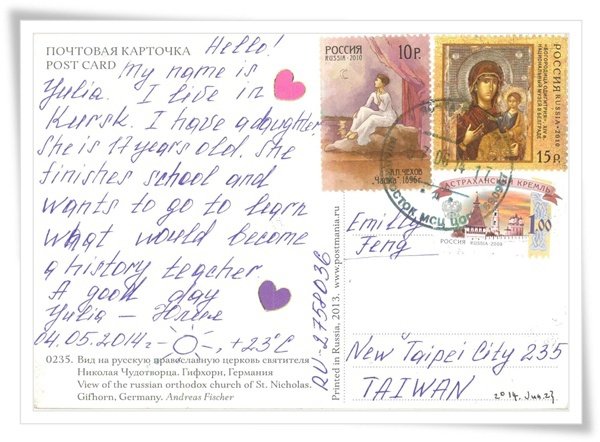 ПОЧТОВАЯ КАРТОЧКА
POST CARD
Hello!
My name is
Yulia. I live in
Kursk. I have a daughter.
She is 17 years old. She
finishes school and
wants to go to learn
what would become
a history teacher.
A good day
Yulia – Юлия
04.05.2014г. , +23°C
0235. Вид на русскую православную церковь святителя
Николая Чудотворца. Гифхорн, Германия
View of the russian orthodox church of St. Nicholas.
Gifhorn, Germany. Andreas Fischer
RU-2758036
Printed in Russia, 2013. www.postmania.ru
РОССИЯ
RUSSIA · 2010
10 Р.
А.П. ЧЕХОВ
"Чайка" 1896г.
РОССИЯ RUSSIA · 2010
15 Р.
АСТРАХАНСКИЙ КРЕМЛЬ
РОССИЯ RUSSIA · 2009
1.00
Emilly
Feng
New Taipei City 235
TAIWAN
2014. Jun.27.